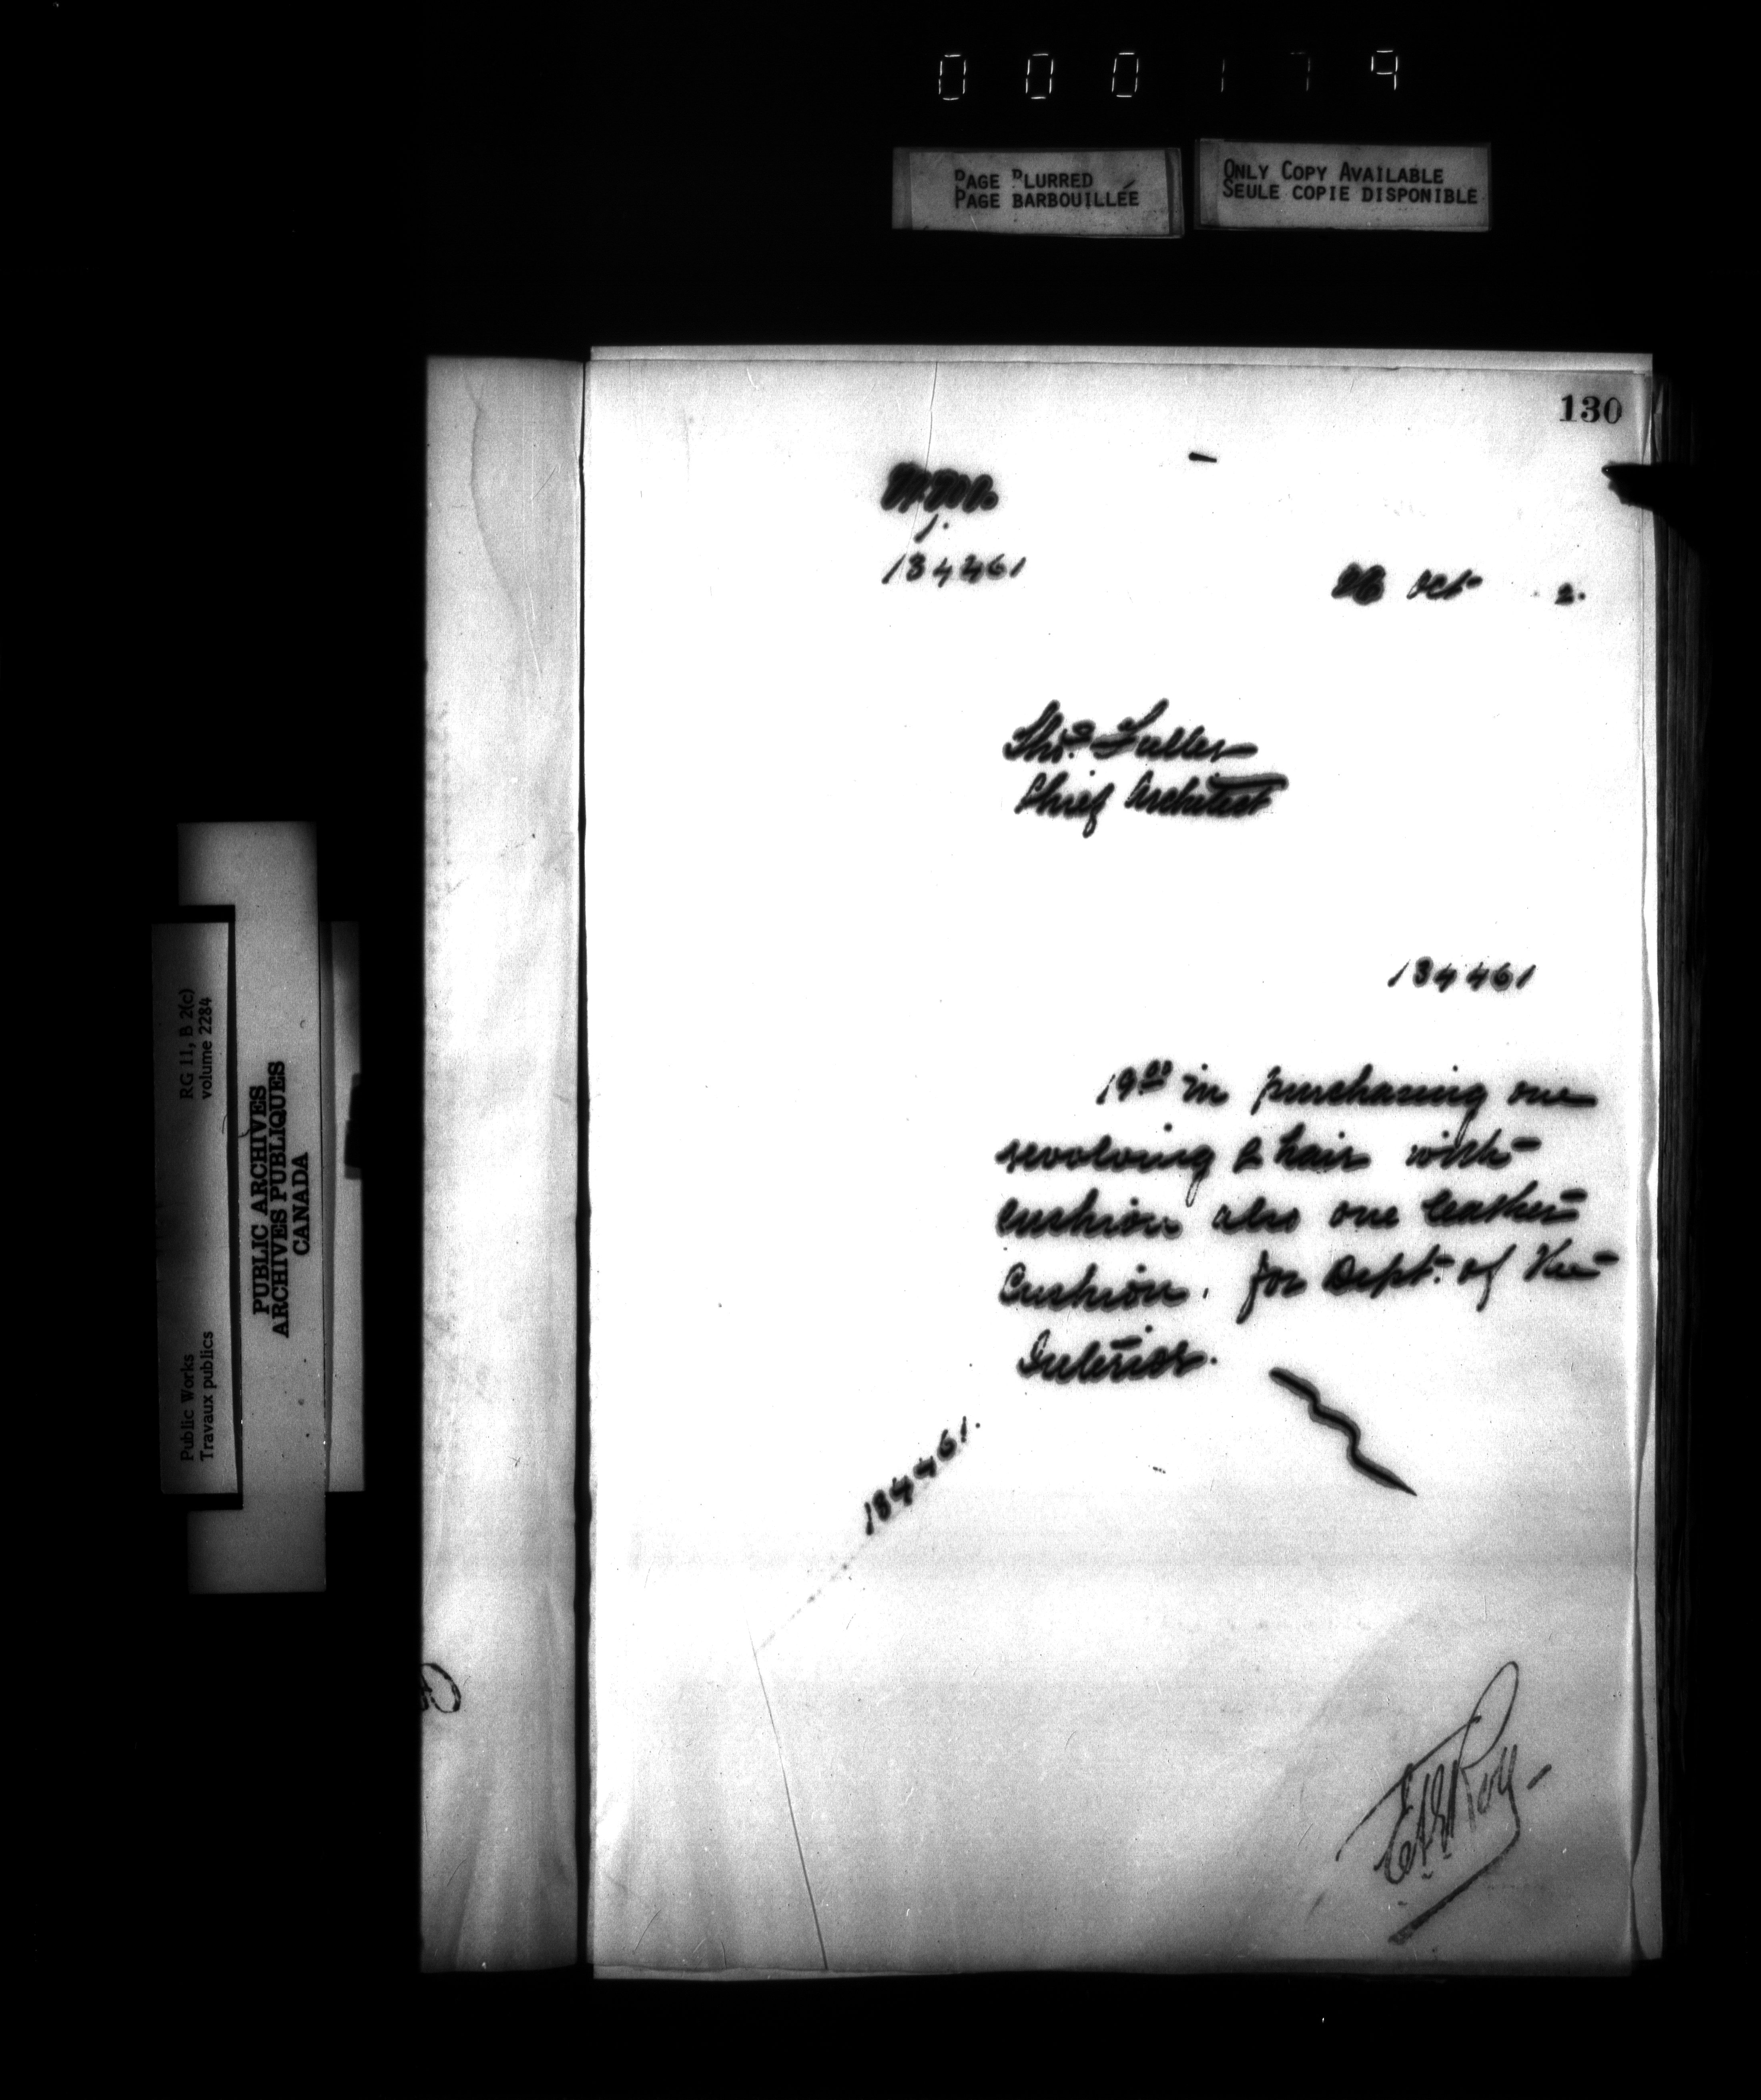 000179
PAGE BLURRED
PAGE BARBOUILLÉE
ONLY COPY AVAILABLE
SEULE COPIE DISPONIBLE
130
1.
134461
26 Oct 2.
Thos. Fuller
Chief Architect
134461
19.00 in purchasing one
revolving Chair with
cushion also one leather
Cushion. for Dept. of the
Interior.
134461.
E.F.E. Roy
RG 11, B 2(c)
volume 2284
Public Works
Travaux publics
PUBLIC ARCHIVES
ARCHIVES PUBLIQUES
CANADA